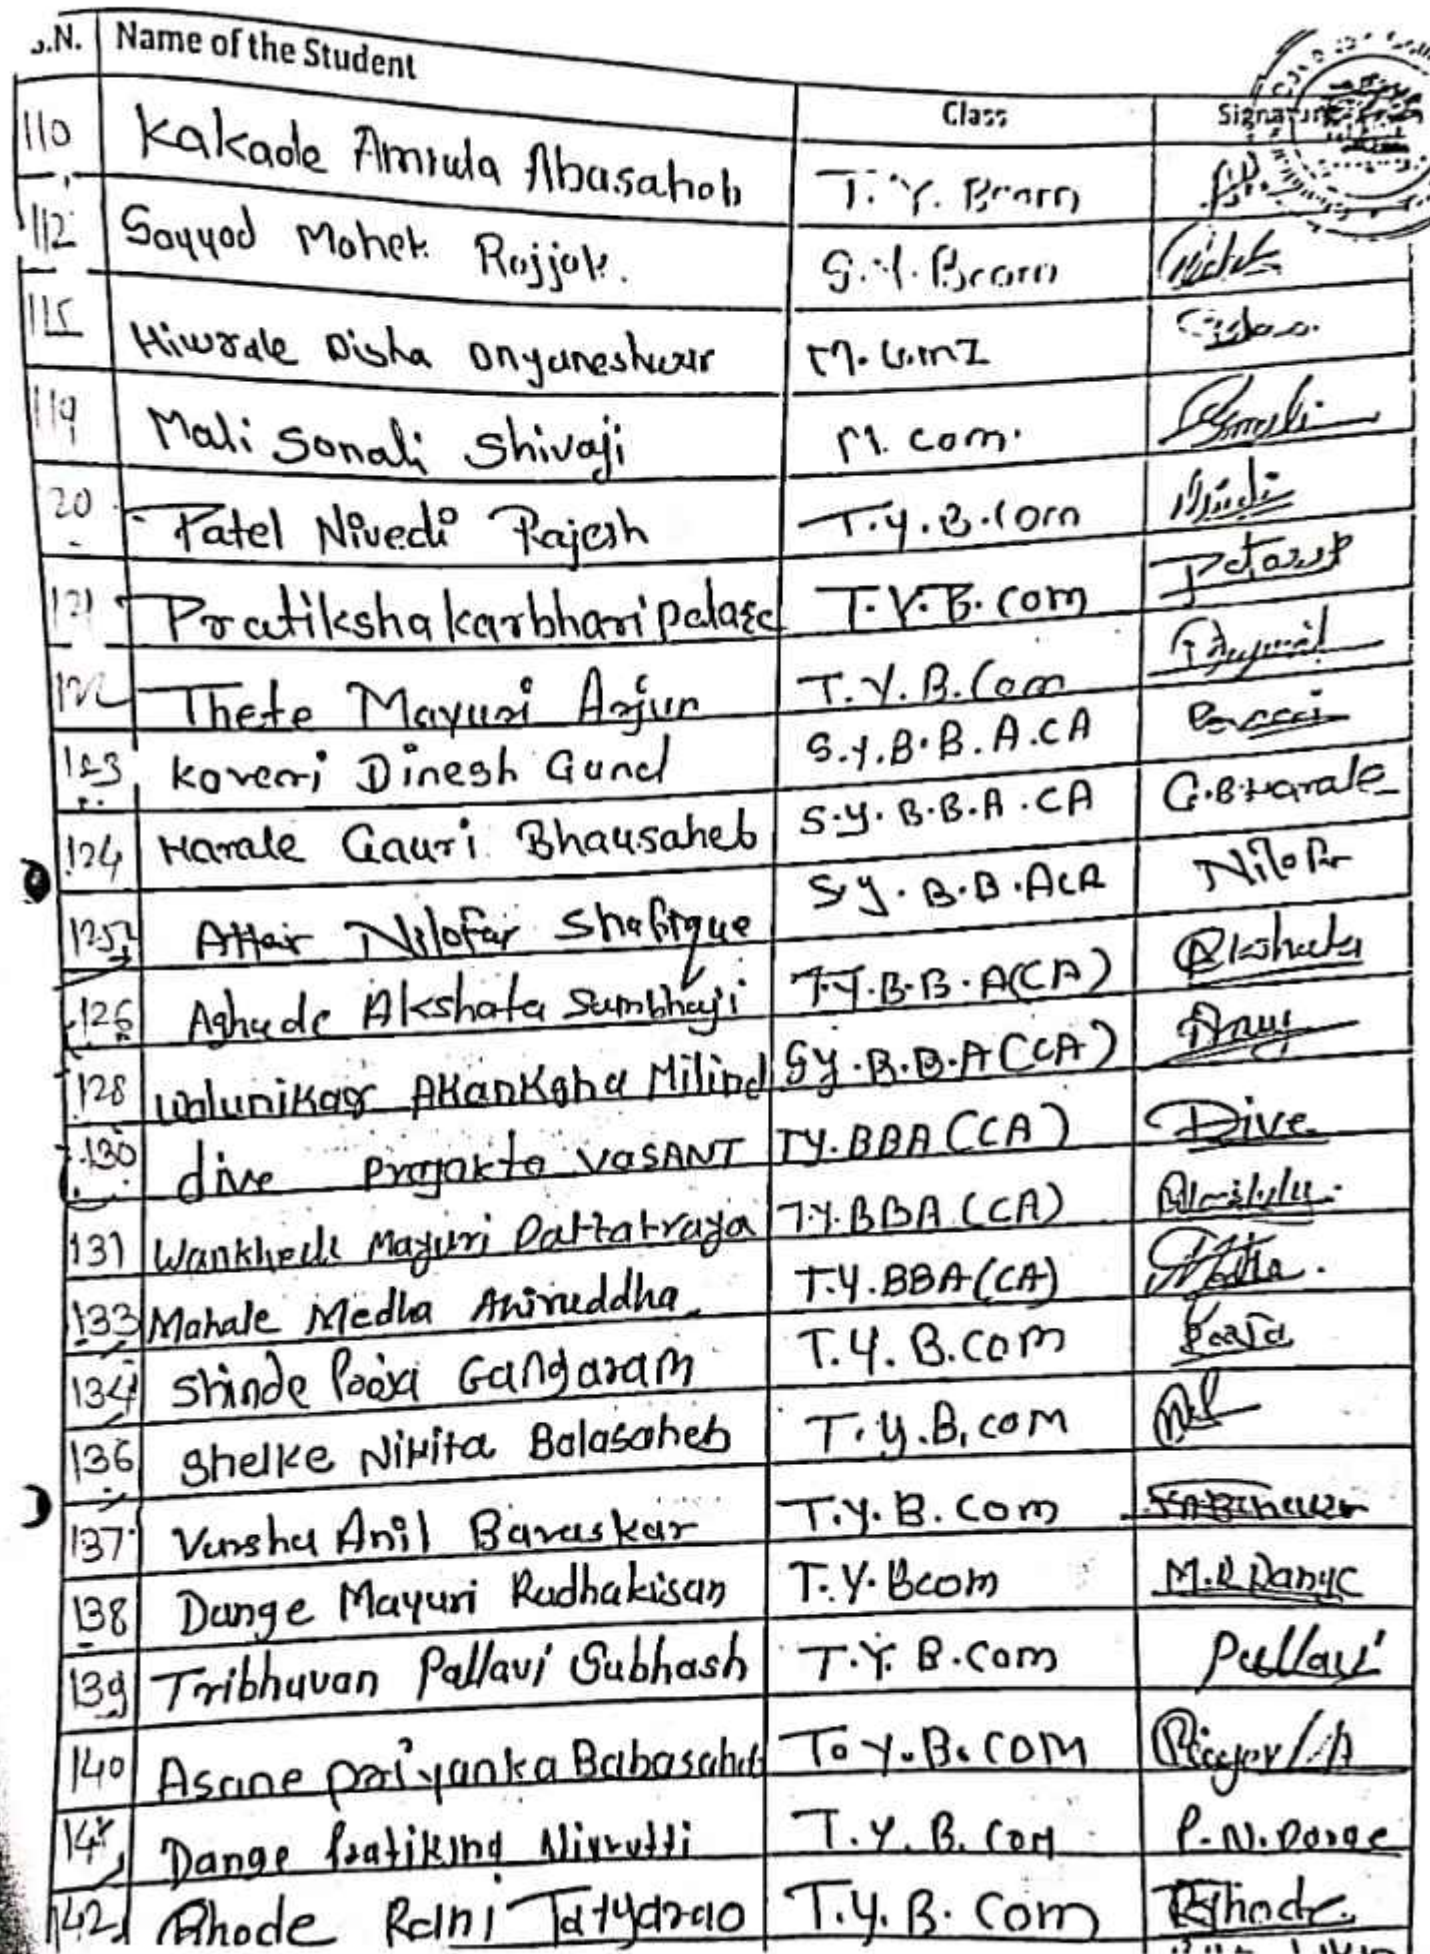 S.N. Name of the Student Class Signature
110 Kakade Amruta Abasaheb T.Y. Bcom
112 Sayyad Mahek Rajjak. S.Y. Bcom
115 Hiwrale Disha Dnyaneshwar M.
119 Mali Sonali Shivaji M. com.
20 Patel Nivedi Rajesh T.y.B.Com
121 Pratiksha karbhari T.Y.B.com
122 Thete Mayuri Arjun T.Y.B.Com
123 Kaveri Dinesh Gund S.Y.B.B.A.CA
124 Harale Gauri Bhausaheb S.y.B.B.A.CA G.B.Harale
125 Attar Nilofar Shafique S.y.B.B.A CA Nilofar
126 Aghade Akshata Sambhaji T.Y.B.B.A(CA) Akshata
128 Walunikar Akanksha Milind SY.B.B.A(CA)
130 dive Prajakta VASANT TY.BBA (CA) Dive
131 Wankhede Mayuri Dattatraya T.Y.BBA (CA)
133 Mahale Medha Aniruddha T.Y.BBA(CA)
134 Shinde Pooja Gangaram T.Y.B.com Pooja
136 Shelke Nikita Balasaheb T.y.B.com
137 Varsha Anil Bavaskar T.y.B.Com
138 Dange Mayuri Radhakisan T.Y.Bcom M.R.Dange
139 Tribhuvan Pallavi Subhash T.Y. B.Com Pallavi
140 Asane Priyanka Babasaheb T.Y.B.COM
Dange Nivrutti T.Y.B.Com P.N.Dange
142 Rhode Rani Tatyarao T.Y.B. Com